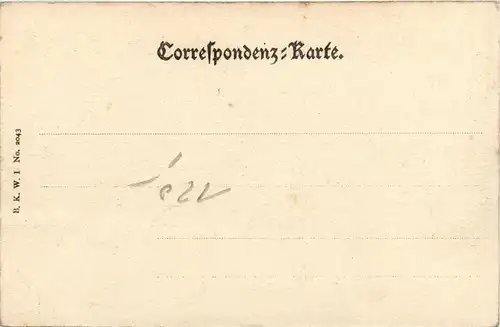 Correspondenz-Karte.
B. K. W. I. No. 2043